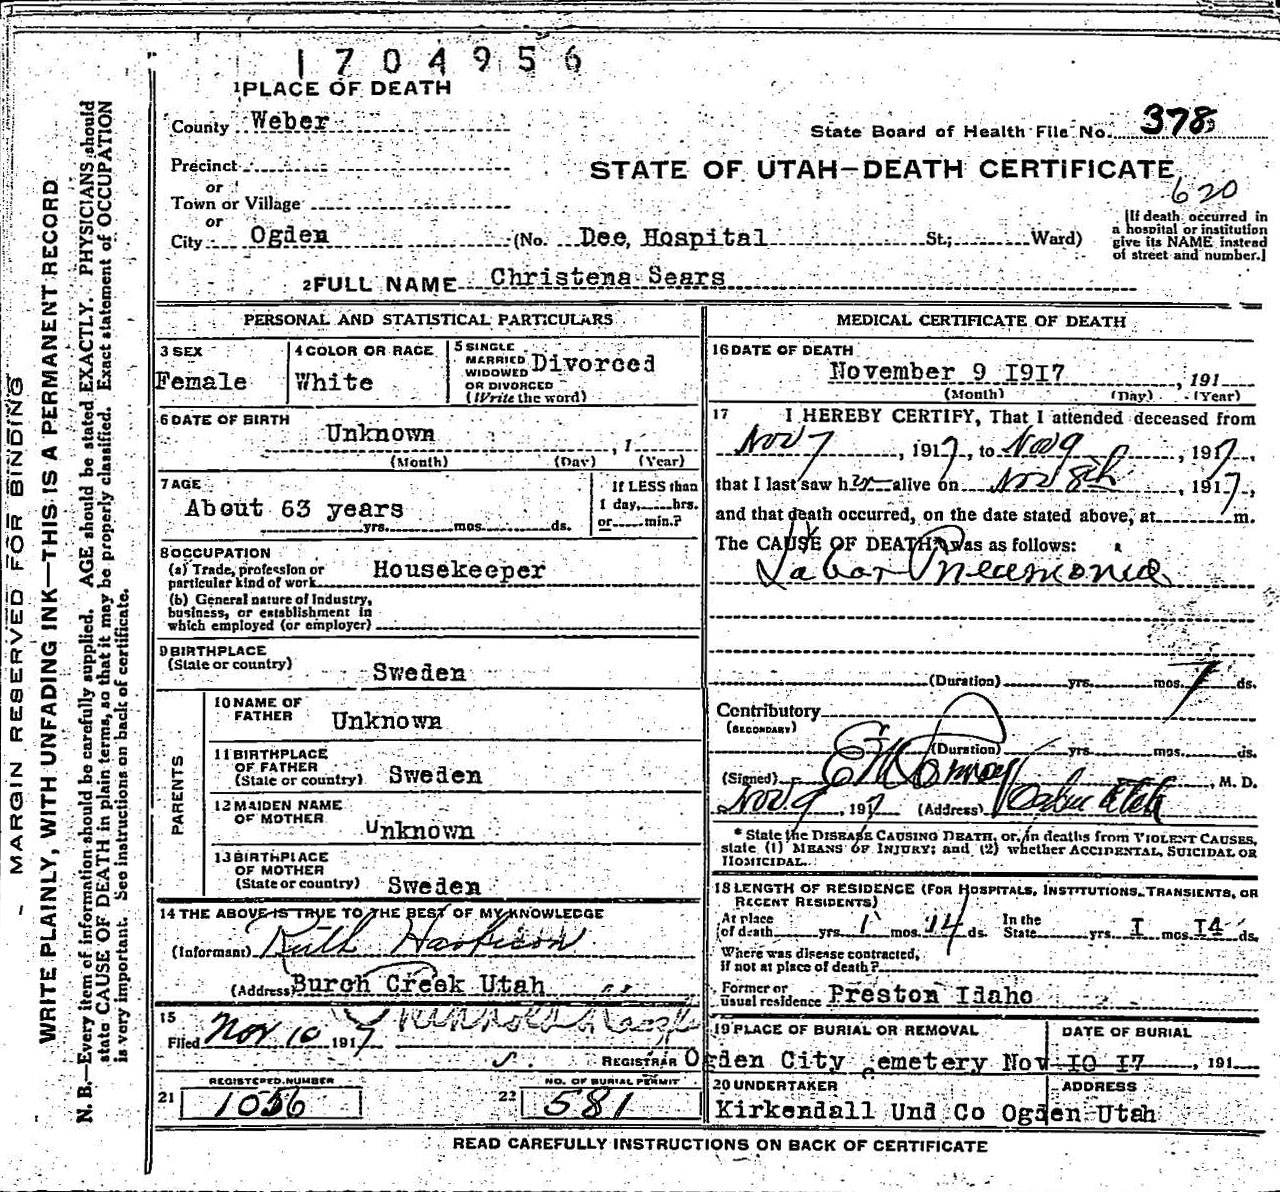 1704956
1 PLACE OF DEATH
County Weber
State Board of Health File No. 378
Precinct
STATE OF UTAH—DEATH CERTIFICATE
or
620
Town or Village
or
City Ogden (No. Dee, Hospital St.; Ward)
[If death occurred in
a hospital or institution
give its NAME instead
of street and number.]
2 FULL NAME Christena Sears
PERSONAL AND STATISTICAL PARTICULARS
3 SEX
Female
4 COLOR OR RACE
White
5 SINGLE
MARRIED
WIDOWED
OR DIVORCED
(Write the word)
Divorced
6 DATE OF BIRTH
Unknown , 1
(Month) (Day) (Year)
7 AGE
About 63 years
yrs. mos. ds.
If LESS than
1 day, hrs.
or min.?
8 OCCUPATION
(a) Trade, profession or
particular kind of work Housekeeper
(b) General nature of Industry,
business, or establishment in
which employed (or employer)
9 BIRTHPLACE
(State or country)
Sweden
PARENTS
10 NAME OF
FATHER
Unknown
11 BIRTHPLACE
OF FATHER
(State or country) Sweden
12 MAIDEN NAME
OF MOTHER
Unknown
13 BIRTHPLACE
OF MOTHER
(State or country) Sweden
14 THE ABOVE IS TRUE TO THE BEST OF MY KNOWLEDGE
(Informant) Ruth Harbison
(Address) Burch Creek Utah
15
Filed Nov 10 1917
REGISTRAR
REGISTERED NUMBER
21 1056
NO. OF BURIAL PERMIT
22 581
MEDICAL CERTIFICATE OF DEATH
16 DATE OF DEATH
November 9 1917 , 191
(Month) (Day) (Year)
17 I HEREBY CERTIFY, That I attended deceased from
Nov 7 , 1917, to Nov 9 , 1917,
that I last saw her alive on Nov 8th , 1917,
and that death occurred, on the date stated above, at m.
The CAUSE OF DEATH* was as follows:
Labor Pneumonia
(Duration) yrs. mos. 7 ds.
Contributory
(SECONDARY)
(Duration) yrs. mos. ds.
(Signed) , M. D.
Nov 9, 1917 (Address) Utah
* State the DISEASE CAUSING DEATH, or, in deaths from VIOLENT CAUSES,
state (1) MEANS OF INJURY; and (2) whether ACCIDENTAL, SUICIDAL OR
HOMICIDAL.
18 LENGTH OF RESIDENCE (FOR HOSPITALS, INSTITUTIONS, TRANSIENTS, OR
RECENT RESIDENTS)
At place
of death yrs. 1 mos. 14 ds.
In the
State yrs. I mos. I4 ds.
Where was disease contracted,
if not at place of death?
Former or
usual residence Preston Idaho
19 PLACE OF BURIAL OR REMOVAL
Ogden City Cemetery
DATE OF BURIAL
Nov 10 17 , 191
20 UNDERTAKER
Kirkendall Und Co
ADDRESS
Ogden Utah
READ CAREFULLY INSTRUCTIONS ON BACK OF CERTIFICATE
MARGIN RESERVED FOR BINDING
WRITE PLAINLY, WITH UNFADING INK—THIS IS A PERMANENT RECORD
N. B.—Every item of information should be carefully supplied. AGE should be stated EXACTLY. PHYSICIANS should
state CAUSE OF DEATH in plain terms, so that it may be properly classified. Exact statement of OCCUPATION
is very important. See instructions on back of certificate.